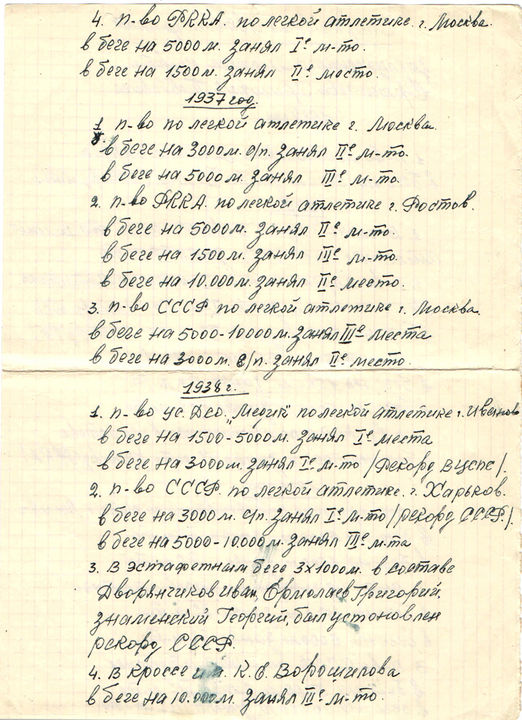 4. п-во РККА. по легкой атлетике. г. Москва.
в беге на 5000 м. занял Iе м-то.
в беге на 1500 м. занял IIе место.
1937 год.
1. п-во по легкой атлетике г. Москва.
в беге на 3000 м. с/п. занял IIе м-то.
в беге на 5000 м. занял IIIе место.
2. п-во РККА. по легкой атлетике г. Ростов.
в беге на 5000 м. занял IIе м-то.
в беге на 1500 м. занял IIIе м-то.
в беге на 10.000 м. занял IIе место.
3. п-во СССР по легкой атлетике г. Москва.
в беге на 5000-10000 м. занял IIIе места
в беге на 3000 м. с/п. занял IIе место.
1938 г.
1. п-во ус. Дсо. "Медик" по легкой атлетике г. Иваново
в беге на 1500-5000 м. занял Iе места
в беге на 3000 м. занял Iе м-то /рекорд ВЦСПС/.
2. п-во СССР. по легкой атлетике. г. Харьков.
в беге на 3000 м. с/п. занял Iе м-то /рекорд СССР./.
в беге на 5000-10.000 м. занял IIIе м-та
3. В эстафетным беге 3х1000 м. в составе
Дворянчиков Иван, Ермолаев Григорий,
Знаменский Георгий, был установлен
рекорд СССР.
4. В кроссе им. К. Е. Ворошилова
в беге на 10.000 м. занял IIIе м-то.